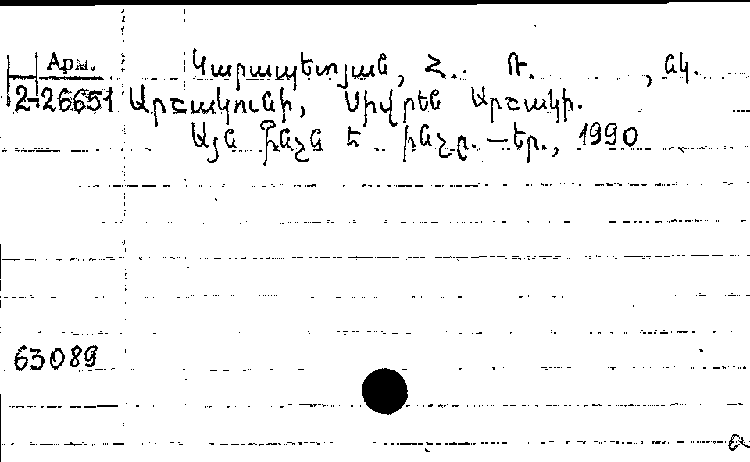 Арм. Կարապետյան, Հ. Թ. , նկ.
2-26651 Արշակունի, Սիվրեն Արշակի.
Այն ի՞նչն է ինչը. – Եր., 1990
63089
a